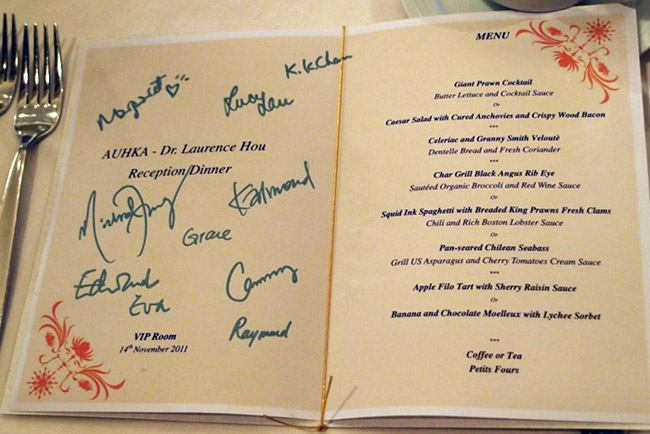 Margaret
K.K.Chan
Lucy
Lau
AUHKA - Dr. Laurence Hou
Reception Dinner
Grace
Eva
Raymond
VIP Room
14th November 2011
MENU
Giant Prawn Cocktail
Butter Lettuce and Cocktail Sauce
Or
Caesar Salad with Cured Anchovies and Crispy Wood Bacon
***
Celeriac and Granny Smith Veloutè
Dentelle Bread and Fresh Coriander
***
Char Grill Black Angus Rib Eye
Sautéed Organic Broccoli and Red Wine Sauce
Or
Squid Ink Spaghetti with Breaded King Prawns Fresh Clams
Chili and Rich Boston Lobster Sauce
Or
Pan-seared Chilean Seabass
Grill US Asparagus and Cherry Tomatoes Cream Sauce
***
Apple Filo Tart with Sherry Raisin Sauce
Or
Banana and Chocolate Moelleux with Lychee Sorbet
***
Coffee or Tea
Petits Fours